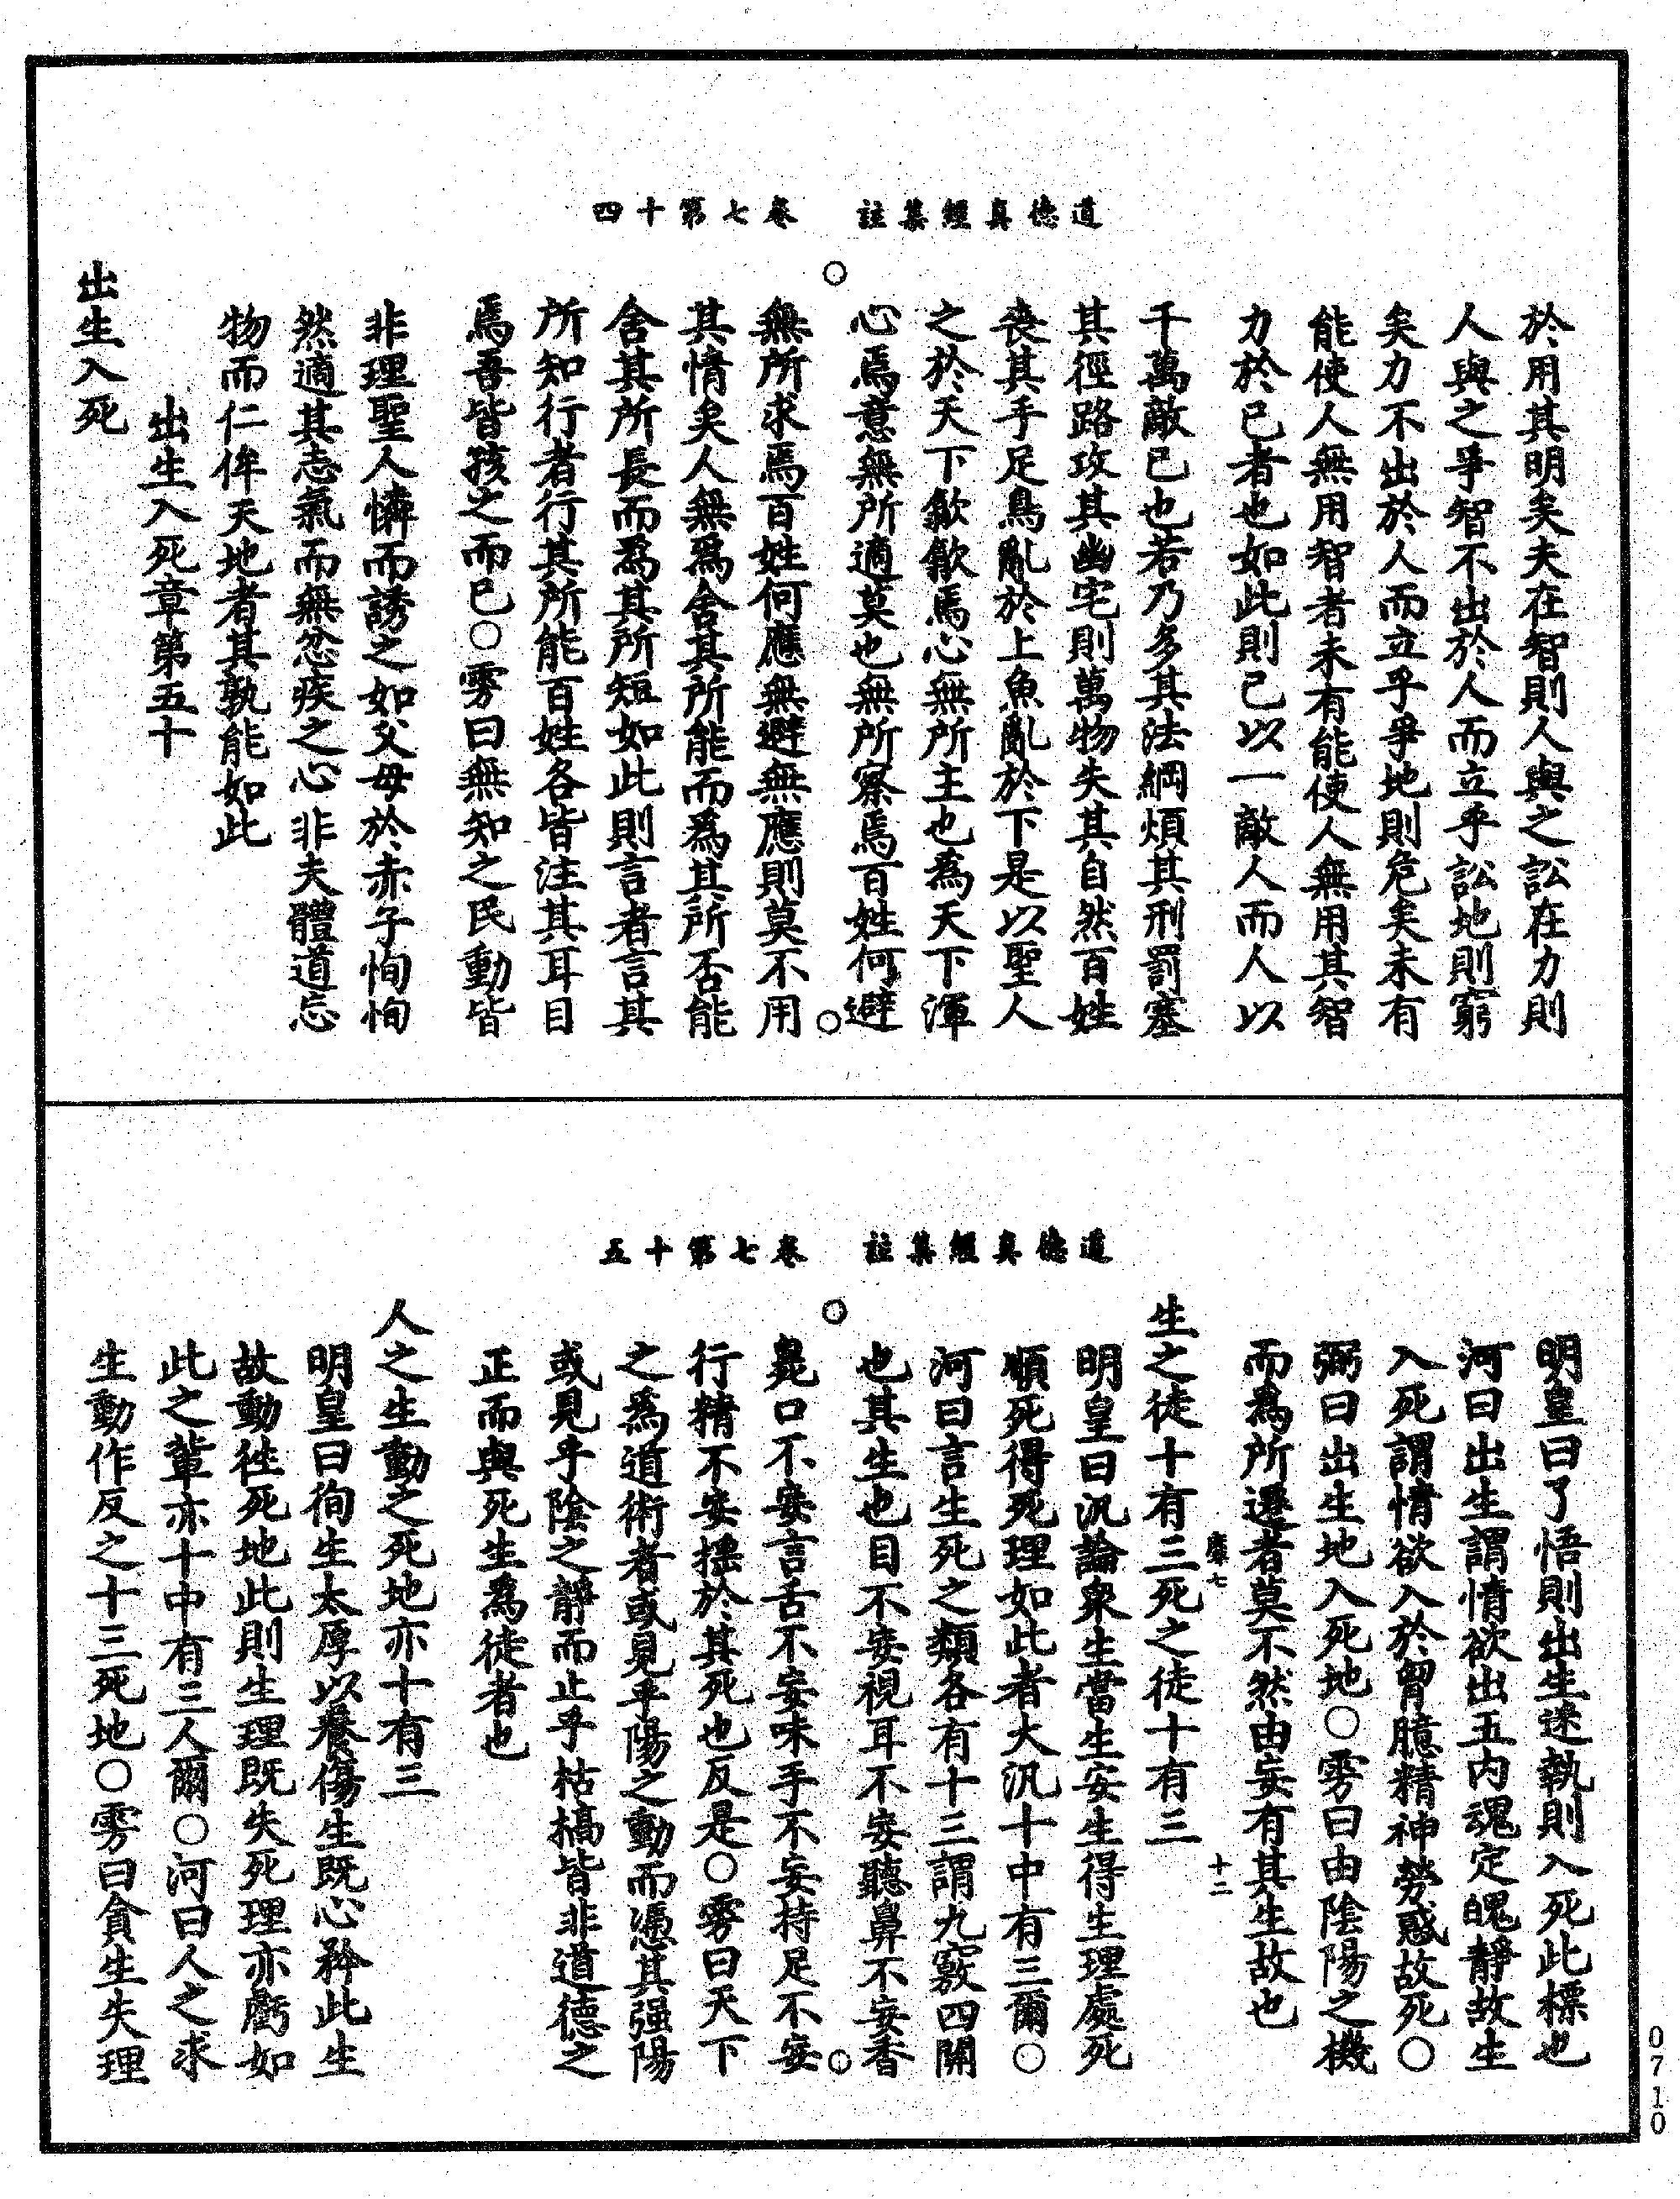 道德真經集註　卷七第十四
於用其明矣夫在智則人與之訟在力則
人與之爭智不出於人而立乎訟地則窮
矣力不出於人而立乎爭地則危矣未有
能使人無用智者未有能使人無用其智
力於已者也如此則已以一敵人而人以
千萬敵已也若乃多其法網煩其刑罰塞
其徑路攻其幽宅則萬物失其自然百姓
喪其手足鳥亂於上魚亂於下是以聖人
之於天下歙歙焉心無所主也為天下渾
心焉意無所適莫也無所察焉百姓何避
無所求焉百姓何應無避無應則莫不用
其情矣人無為舍其所能而為其所否能
舍其所長而為其所短如此則言者言其
所知行者行其所能百姓各皆注其耳目
焉吾皆孩之而已○雱曰無知之民動皆
非理聖人憐而誘之如父母於赤子恂恂
然適其志氣而無忿疾之心非夫體道忘
物而仁侔天地者其孰能如此
出生入死章第五十
出生入死
道德真經集註　卷七第十五
明皇曰了悟則出生迷執則入死此標也
河曰出生謂情欲出五內魂定魄靜故生
入死謂情欲入於胷臆精神勞惑故死○
弼曰出生地入死地○雱曰由陰陽之機
而為所遷者莫不然由妄有其生故也
靡七　十二
生之徒十有三死之徒十有三
明皇曰汎論衆生當生安生得生理處死
順死得死理如此者大汎十中有三爾○
河曰言生死之類各有十三謂九竅四關
也其生也目不妄視耳不妄聽鼻不妄香
臭口不妄言舌不妄味手不妄持足不妄
行精不妄搖於其死也反是○雱曰天下
之為道術者或見乎陽之動而憑其强陽
或見乎陰之靜而止乎枯槁皆非道德之
正而與死生為徒者也
人之生動之死地亦十有三
明皇曰徇生太厚以養傷生既心矜此生
故動徃死地此則生理既失死理亦虧如
此之輩亦十中有三人爾○河曰人之求
生動作反之十三死地○雱曰貪生失理
0710